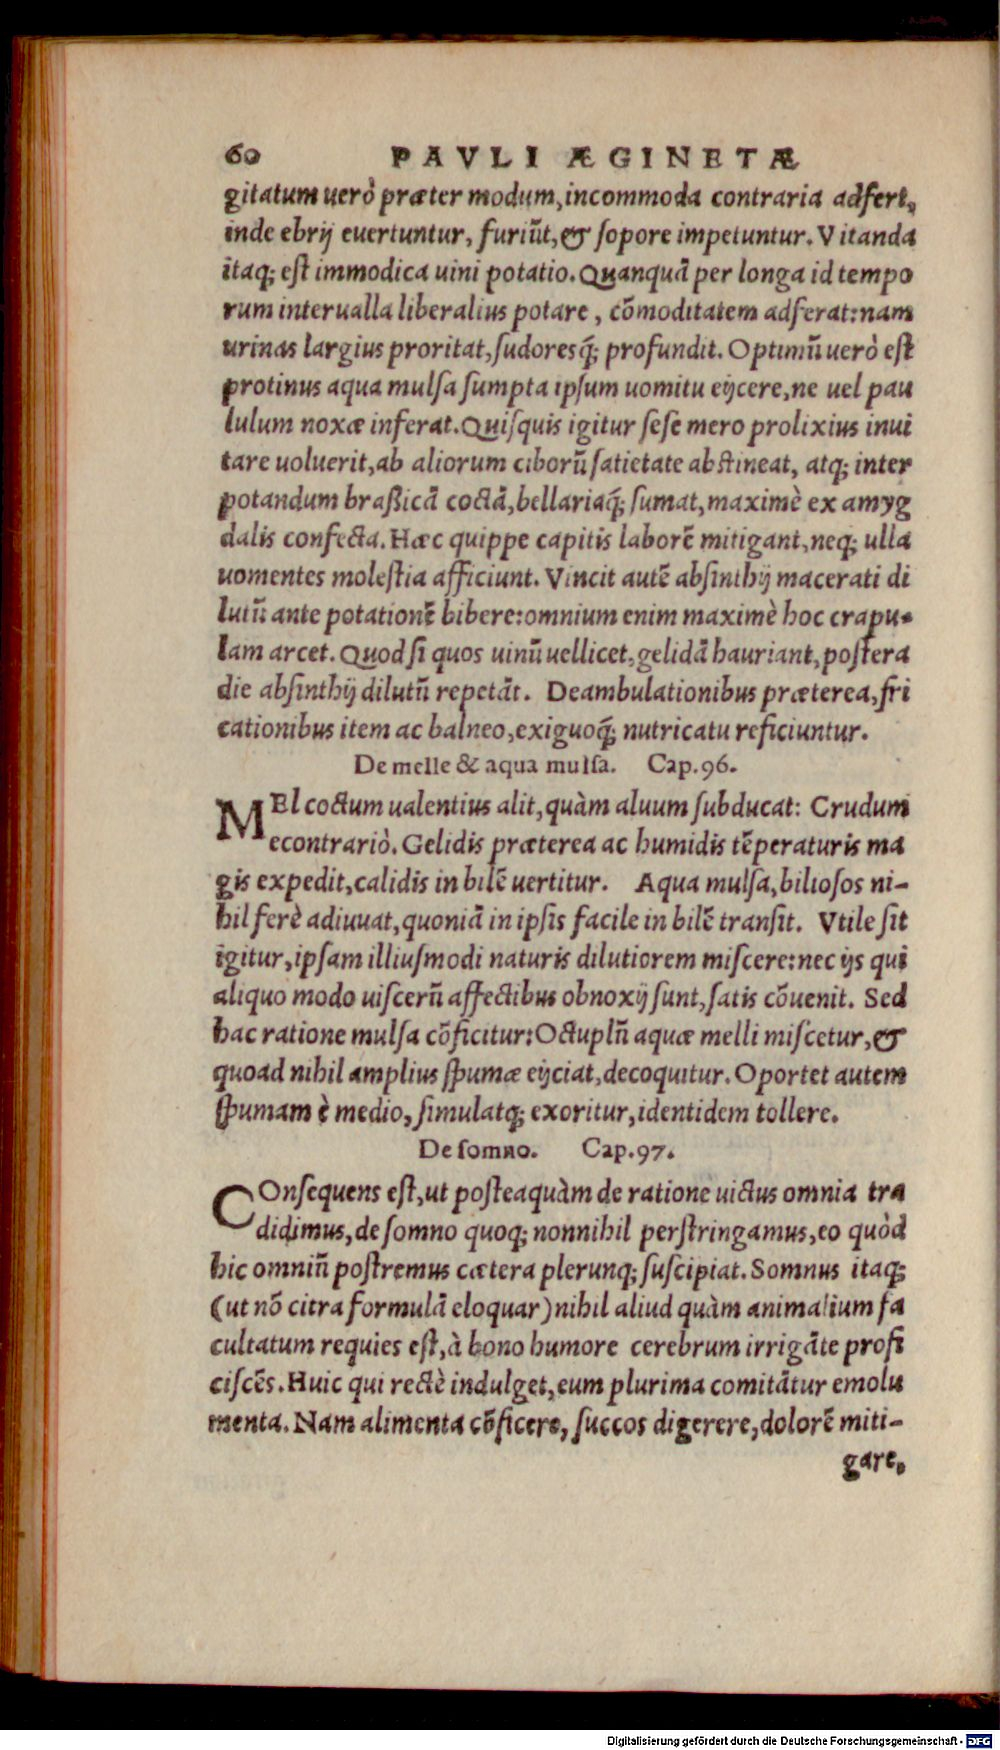 60 PAVLI ÆGINETÆ
gitatum uerò præter modum, incommoda contraria adfert,
inde ebrij euertuntur, furiũt, & sopore impetuntur. Vitanda
itaq; est immodica uini potatio. Quanquã per longa id tempo
rum interualla liberalius potare, cõmoditatem adferat: nam
urinas largius proritat, sudoresq́; profundit. Optimũ uerò est
protinus aqua mulsa sumpta ipsum uomitu eijcere, ne uel pau
lulum noxæ inferat. Quisquis igitur sese mero prolixius inui
tare uoluerit, ab aliorum ciborũ satietate abstineat, atq; inter
potandum braßicã coctã, bellariaq́; sumat, maximè ex amyg
dalis confecta. Hæc quippe capitis laborẽ mitigant, neq; ulla
uomentes molestia afficiunt. Vincit autẽ absinthij macerati di
lutũ ante potationẽ bibere: omnium enim maximè hoc crapu-
lam arcet. Quod si quos uinũ uellicet, gelidã hauriant, postera
die absinthij dilutũ repetãt. Deambulationibus præterea, fri
cationibus item ac balneo, exiguoq́; nutricatu reficiuntur.
De melle & aqua mulsa. Cap. 96.
MEl coctum ualentius alit, quàm aluum subducat: Crudum
econtrariò. Gelidis præterea ac humidis tẽperaturis ma
gis expedit, calidis in bilẽ uertitur. Aqua mulsa, biliosos ni-
hil ferè adiuuat, quoniã in ipsis facile in bilẽ transit. Vtile sit
igitur, ipsam illiusmodi naturis dilutiorem miscere: nec ijs qui
aliquo modo uiscerũ affectibus obnoxij sunt, satis cõuenit. Sed
hac ratione mulsa cõficitur: Octuplũ aquæ melli miscetur, &
quoad nihil amplius spumæ eijciat, decoquitur. Oportet autem
spumam è medio, simulatq; exoritur, identidem tollere.
De somno. Cap. 97.
COnsequens est, ut posteaquàm de ratione uictus omnia tra
didimus, de somno quoq; nonnihil perstringamus, eo quòd
hic omniũ postremus cætera plerunq; suscipiat. Somnus itaq;
(ut nõ citra formulã eloquar) nihil aliud quàm animalium fa
cultatum requies est, à bono humore cerebrum irrigãte profi
ciscẽs. Huic qui rectè indulget, eum plurima comitãtur emolu
menta. Nam alimenta cõficere, succos digerere, dolorẽ miti-
gare,
Digitalisierung gefördert durch die Deutsche Forschungsgemeinschaft - DFG